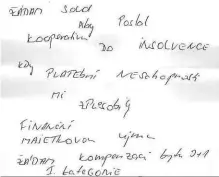 ŽÁDÁM SOUD
ABY POSLAL
KOOPERATIVU DO INSOLVENCE
KDY PLATEBNÍ NESCHOPNOSTÍ
MI
ZPŮSOBILY
FINANČNÍ
MAJETKOVOU UJMU
ŽÁDÁM KOMPENZACI BYTU 3+1
1. KATEGORIE